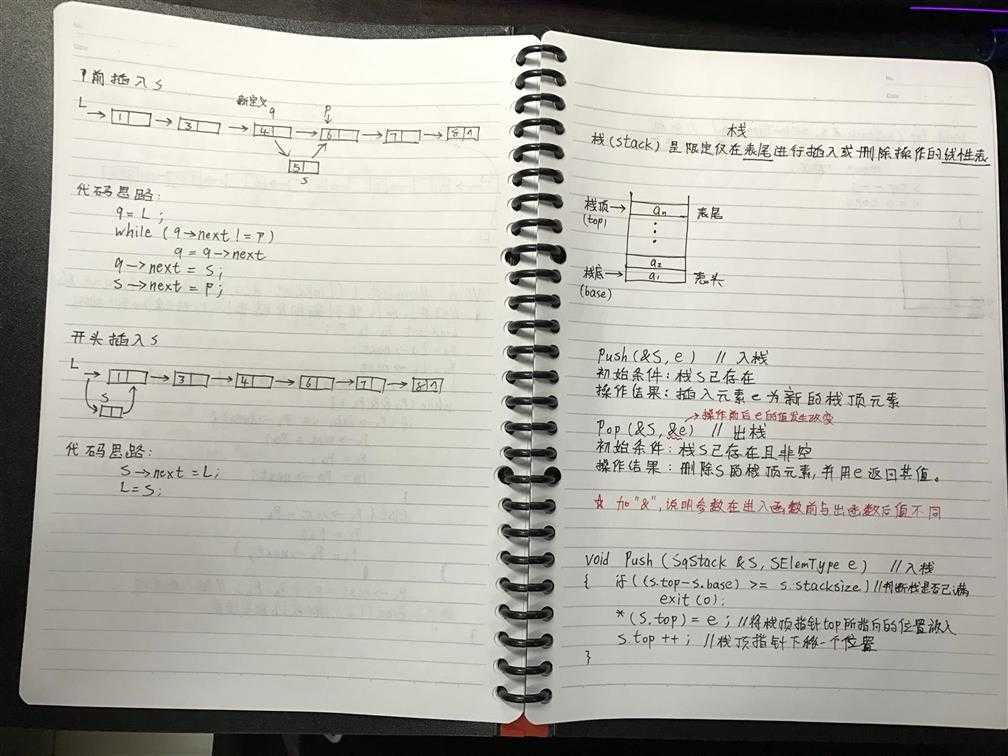 P前插入S
新定义
q
P
L
1
3
4
6
7
8 ^
5
S
代码思路:
q = L ;
while (q→next != P)
q = q→next
q→next = S;
S→next = P;
开头插入S
L
1
3
4
6
7
8 ^
S
代码思路:
S→next = L;
L = S;
栈
栈(stack) 是限定仅在表尾进行插入或删除操作的线性表
栈顶
(top)
an
表尾
a2
栈底
(base)
a1
表头
Push(&S, e) // 入栈
初始条件: 栈S已存在
操作结果: 插入元素e为新的栈顶元素
→操作前后e的值发生改变
Pop (&S, &e) // 出栈
初始条件: 栈S已存在且非空
操作结果: 删除S的栈顶元素, 并用e返回其值。
☆ 加"&", 说明参数在进入函数前与出函数后值不同
void Push (SqStack &S, SElemType e) //入栈
{ if ((s.top-s.base) >= s.stacksize) //判断栈是否已满
exit(0);
*(S.top) = e ; //将栈顶指针top所指向的位置放入
S.top ++ ; //栈顶指针下移一个位置
}